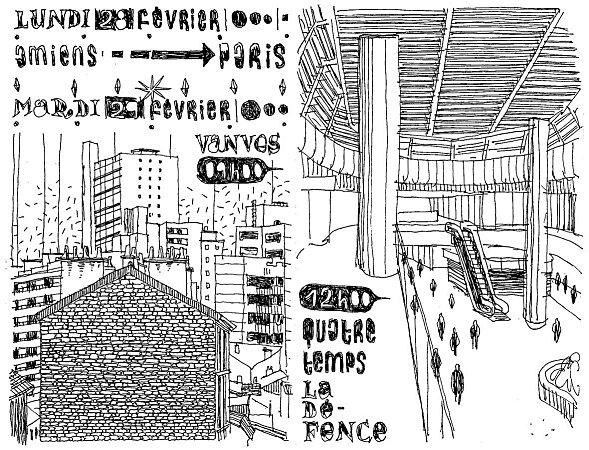 LUNDI 28 FÉVRIER
amiens PARIS
MARDI FÉVRIER
VANVES
12h00
QUATRE
temps
LA
DÉ-
FENCE